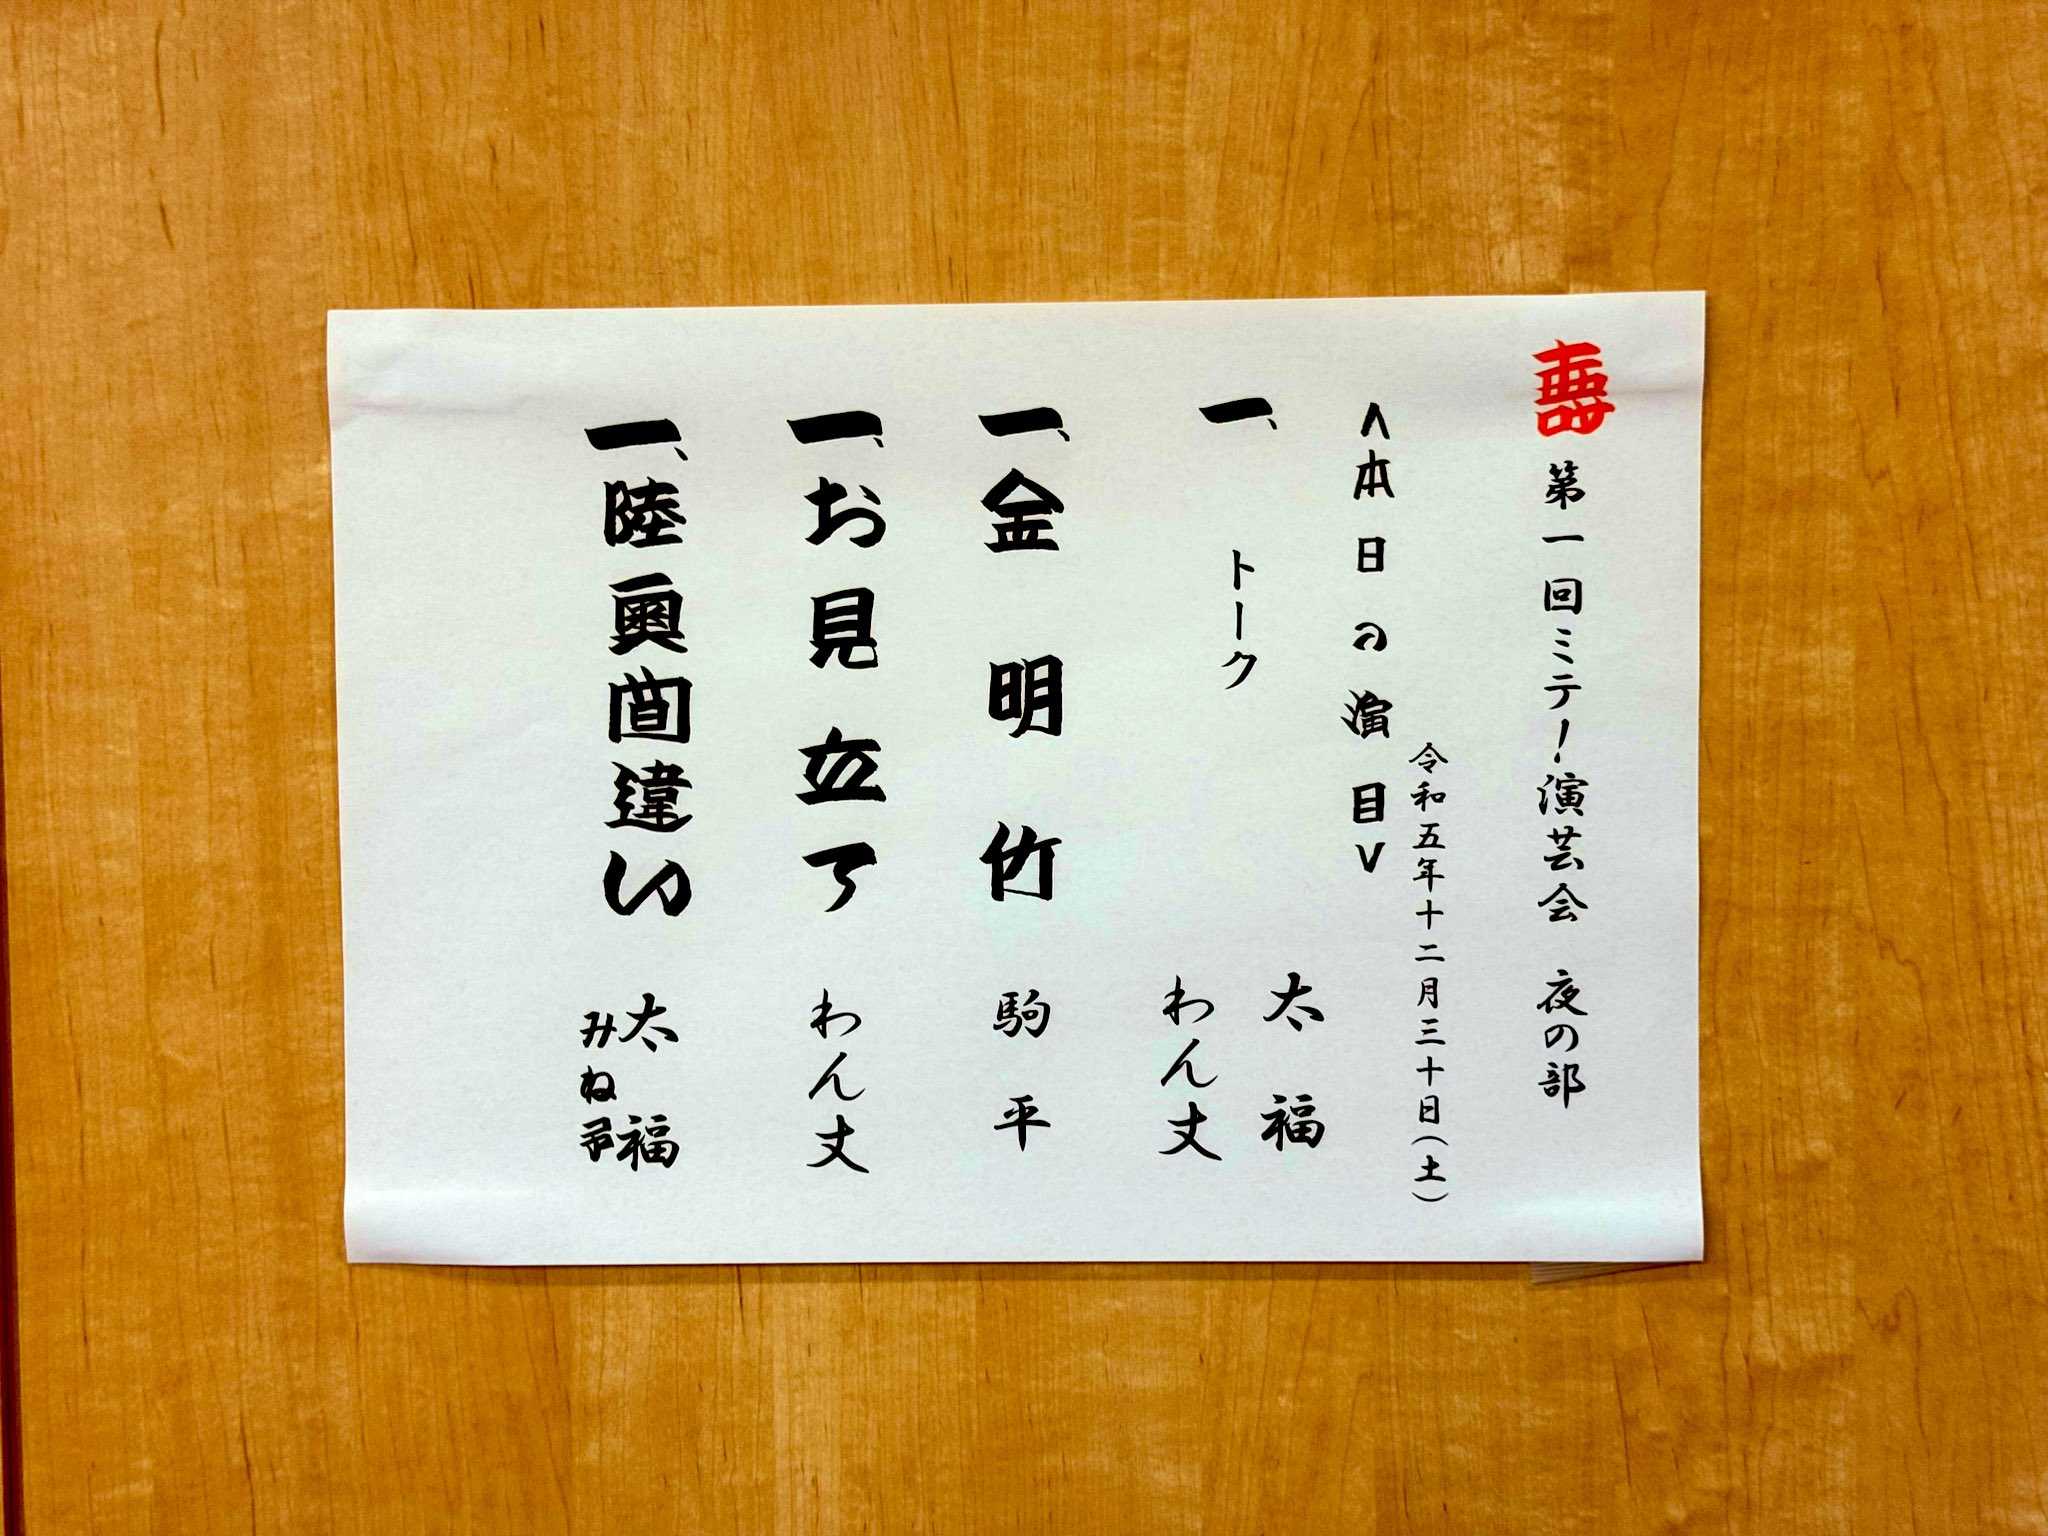 壽 第一回ミテ!演芸会 夜の部
令和五年十二月三十日(土)
<本日の演目>
一、トーク 太福
わん丈
一、金明竹 駒平
一、お見立て わん丈
一、陸奥間違い 太福
みね子